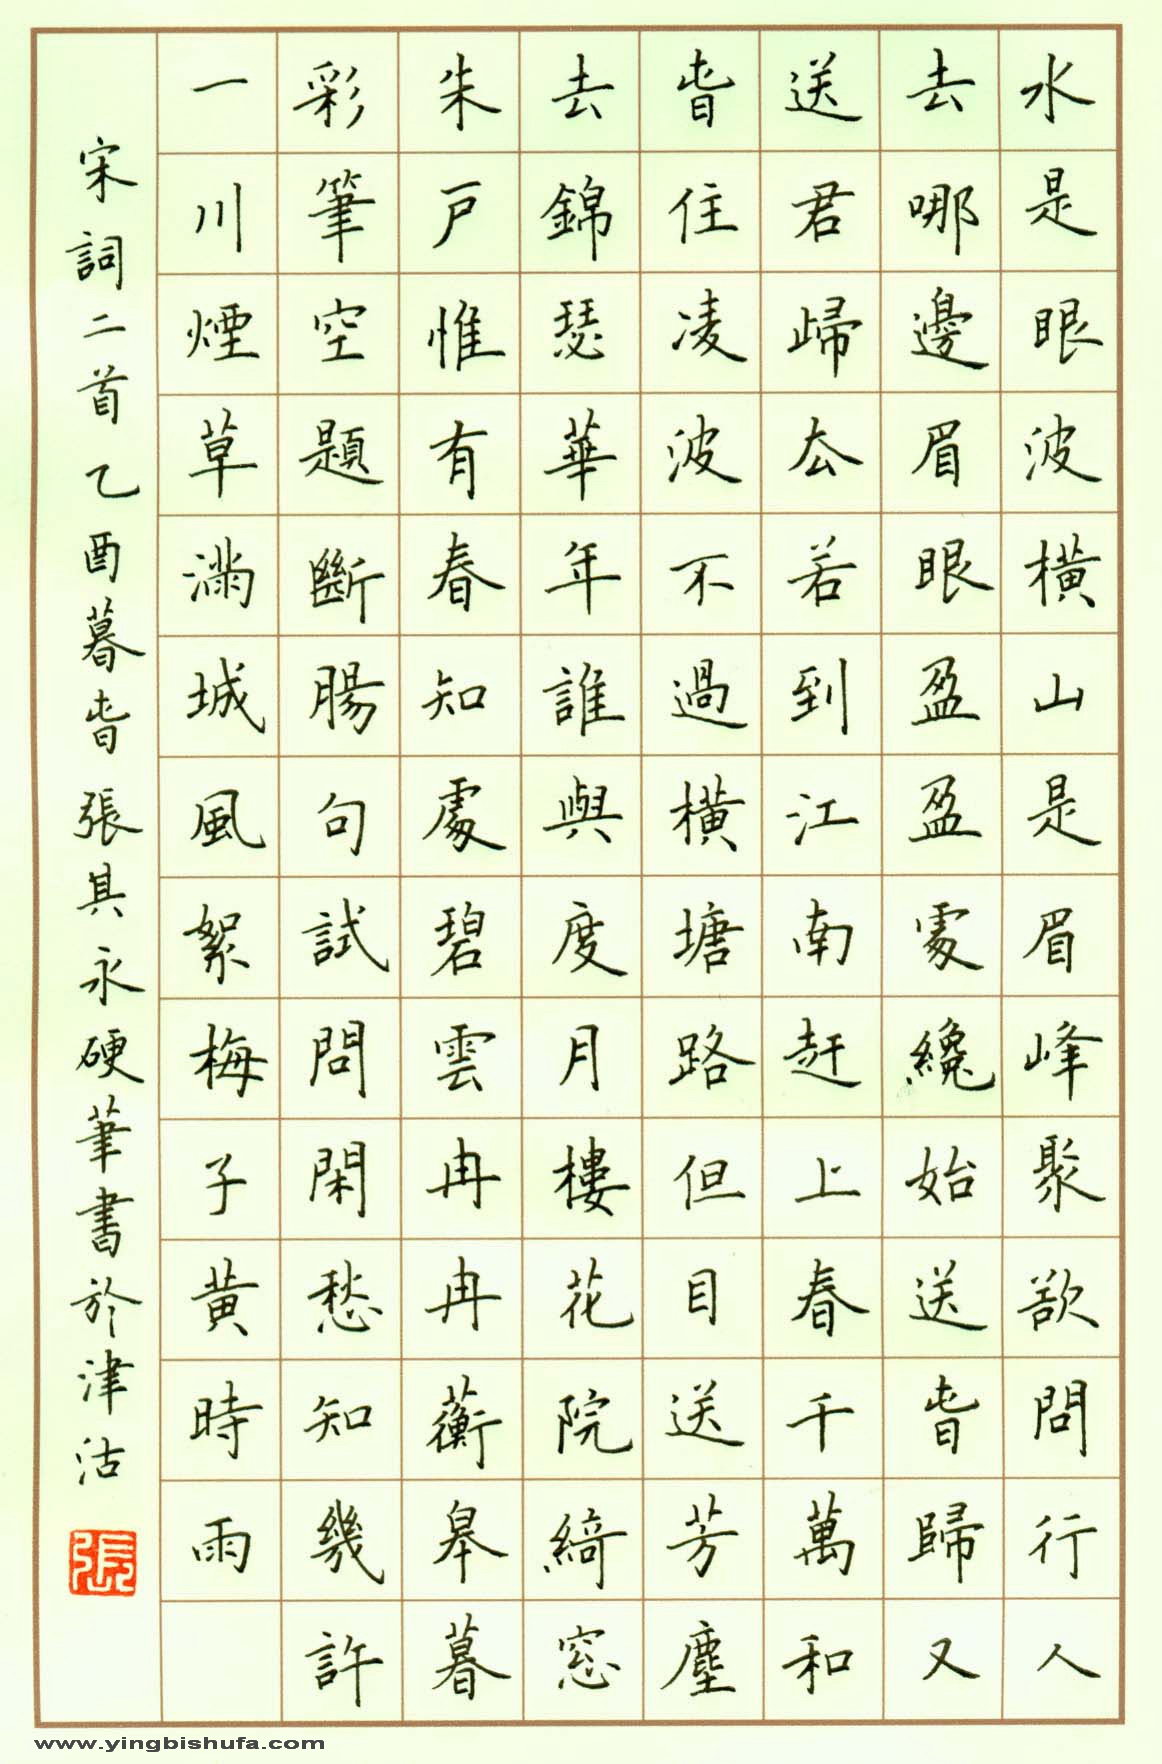 水是眼波橫山是眉峰聚欲問行人
去哪邊眉眼盈盈處纔始送旾歸又
送君歸厺若到江南赶上春千萬和
旾住凌波不過橫塘路但目送芳塵
去錦瑟華年誰與度月樓花院綺窓
朱戶惟有春知處碧雲冉冉蘅皋暮
彩筆空題斷腸句試問閑愁知幾許
一川煙草滿城風絮梅子黃時雨
宋詞二首乙酉暮旾張其永硬筆書於津沽
張
www.yingbishufa.com